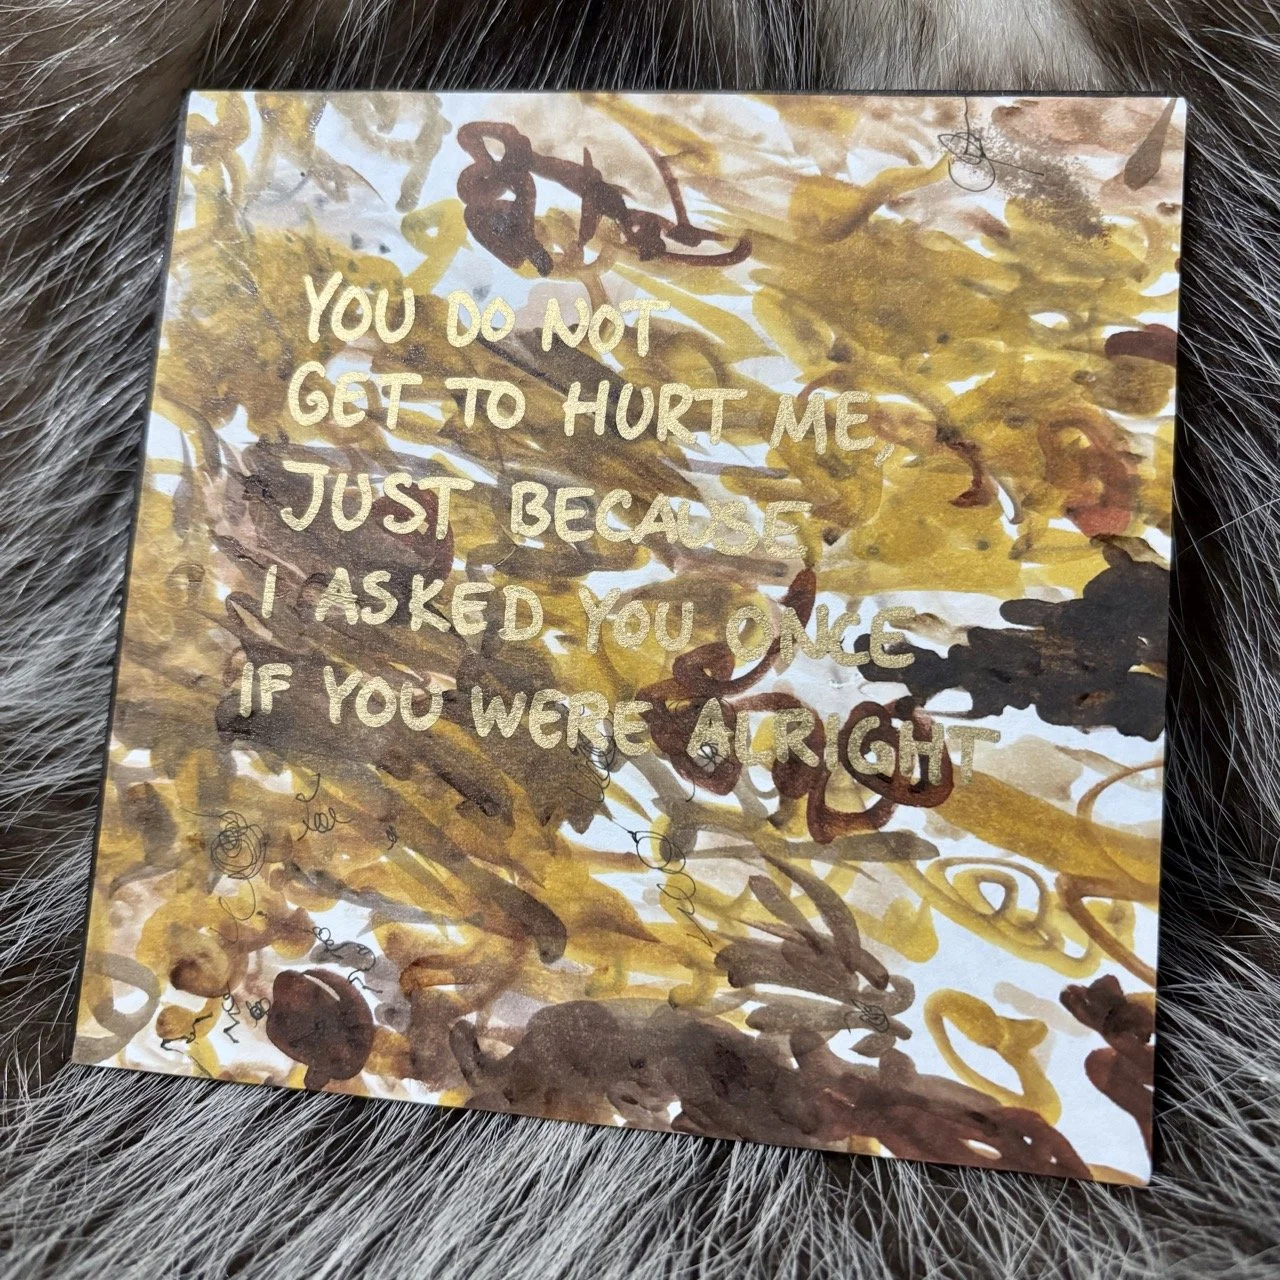 YOU DO NOT
GET TO HURT ME,
JUST BECAUSE
I ASKED YOU ONCE
IF YOU WERE ALRIGHT